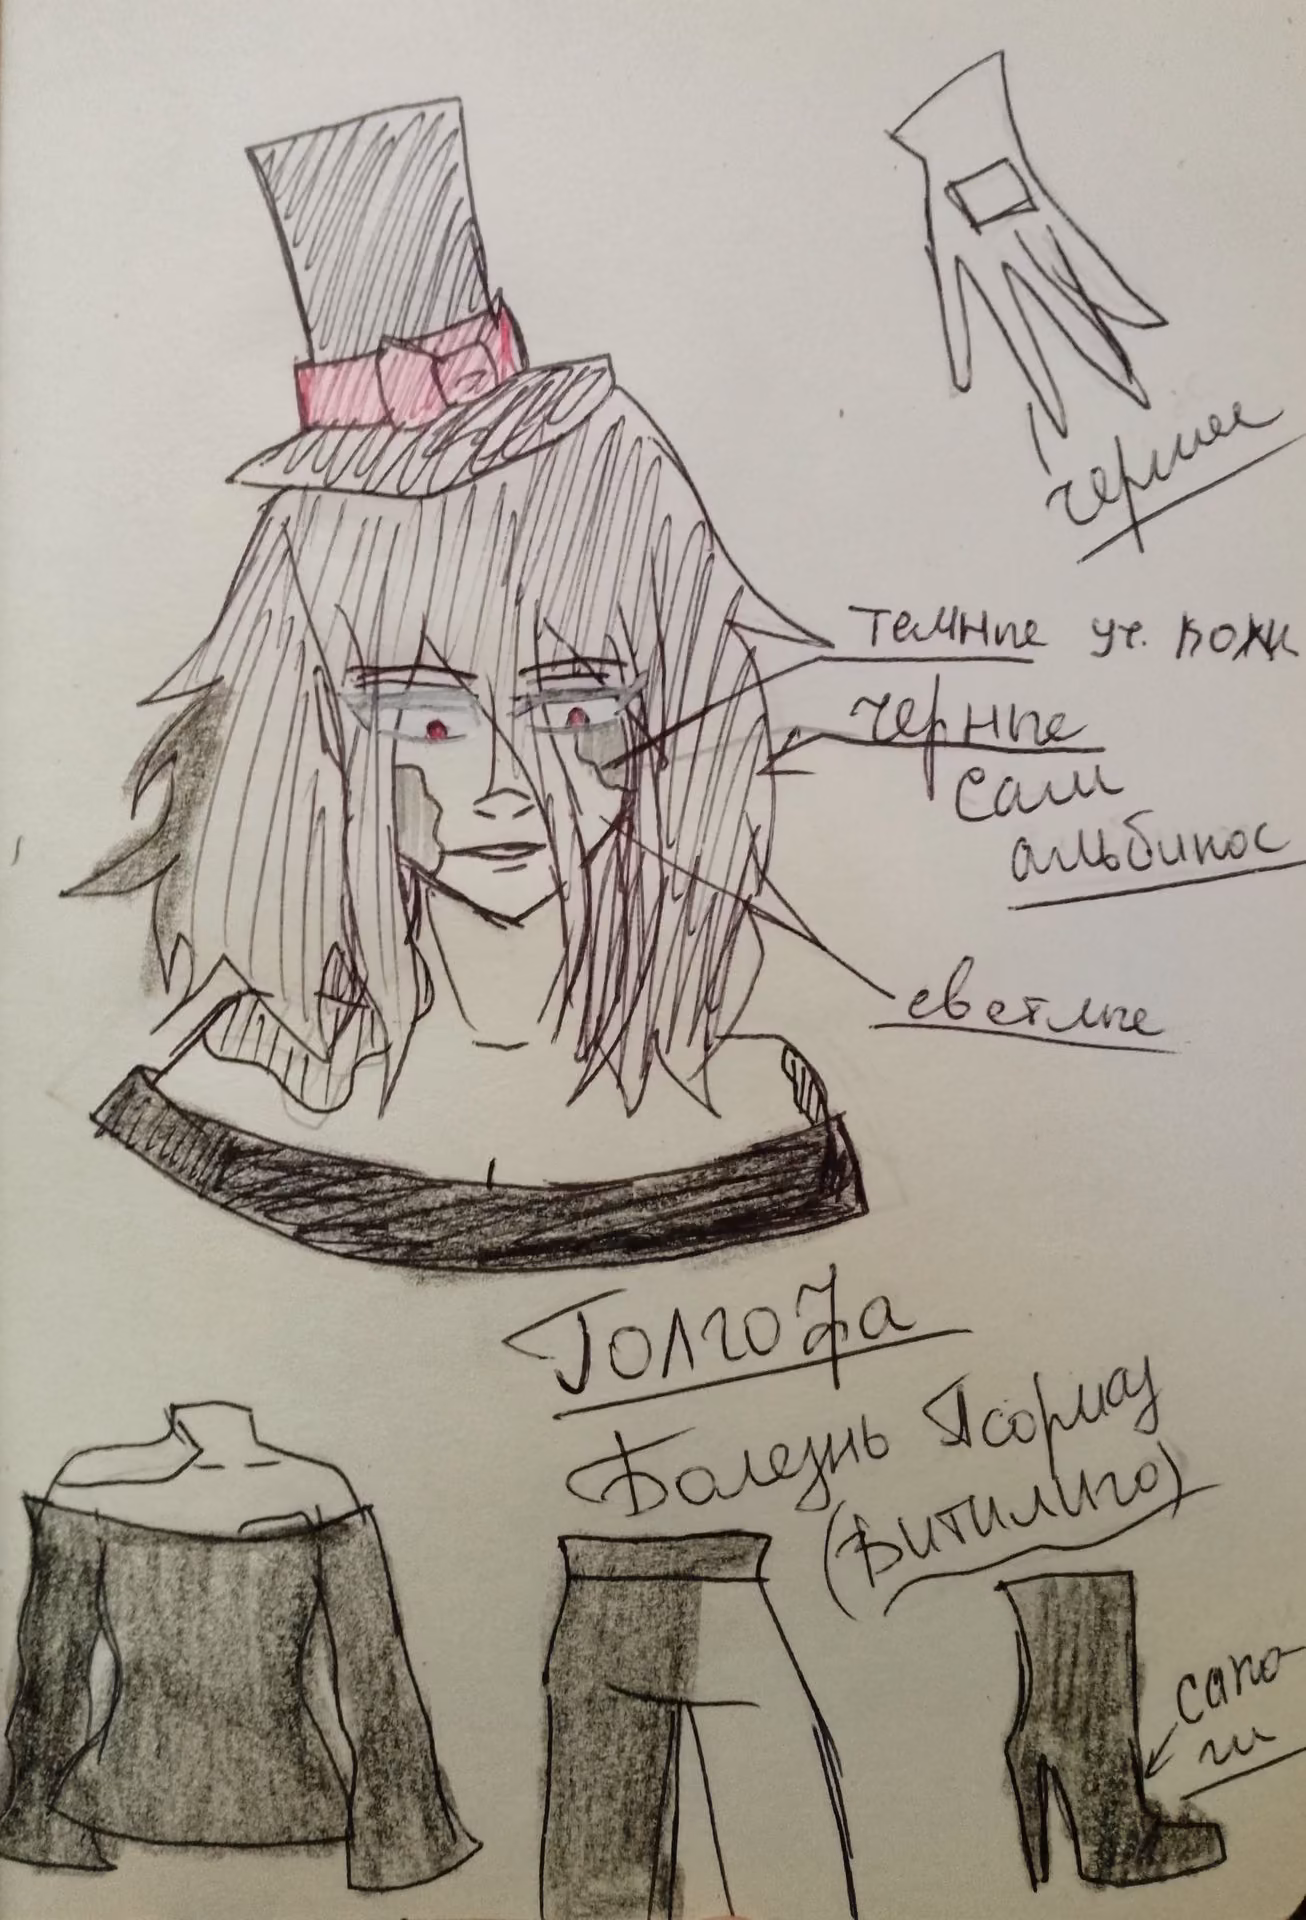 черные
темные уч. кожи
черные
сам
альбинос
светлые
Голгофа
Болезнь
(витилиго)
сапо-
ги